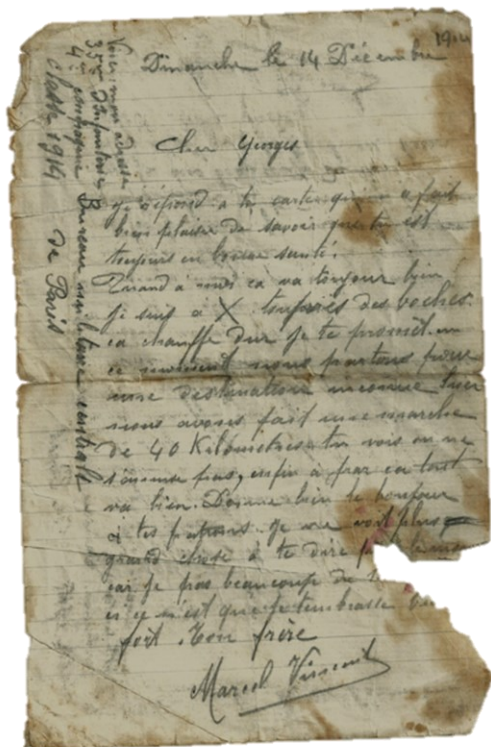 Dimanche le 14 Décembre 1914
Cher Georges
je répond a ta carte qui m a fait
bien plaisir de savoir que tu est
toujours en bonne santé.
Quand à moi ca va toujour bien
je suis a X tuprès des boches.
ca chauffe dur je te promêt. en
ce moment nous partons pour
une destination inconnue hier
nous avons fait une marche
de 40 Kilomètres tu vois on ne
s'amuse pas, enfin à par ca tout
va bien. Donne bien le bonjour
à tes patrons. je ne voit plus
grand chose à te dire
car je pas beaucoup de
si ce n'est que je tembrasse
fort. Ton frère
Marcel Vincent
Voici mon adresse
35em d'infanterie
4em compagnie Bureau militaire centrale
classe 1914 de Paris